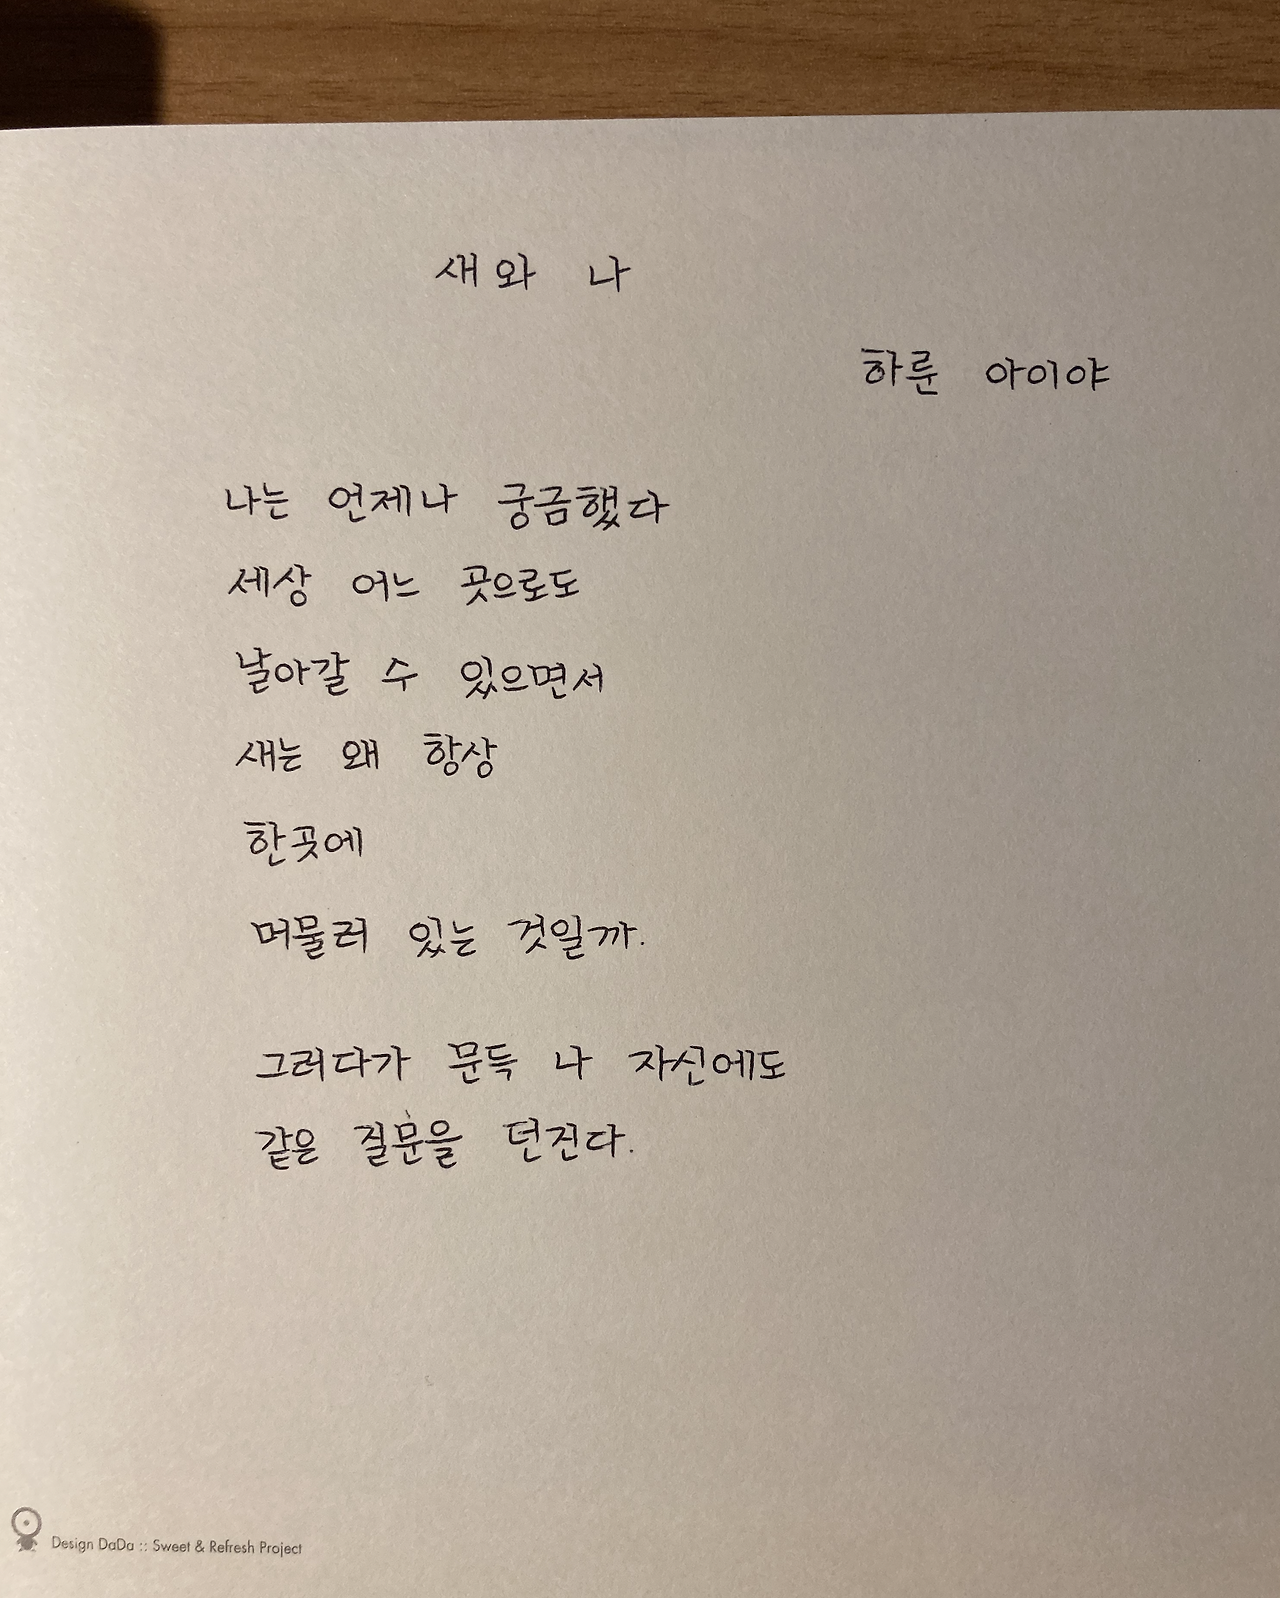 새와 나
하룬 아이야
나는 언제나 궁금했다
세상 어느 곳으로도
날아갈 수 있으면서
새는 왜 항상
한곳에
머물러 있는 것일까.
그러다가 문득 나 자신에도
같은 질문을 던진다.
Design DaDa :: Sweet & Refresh Project